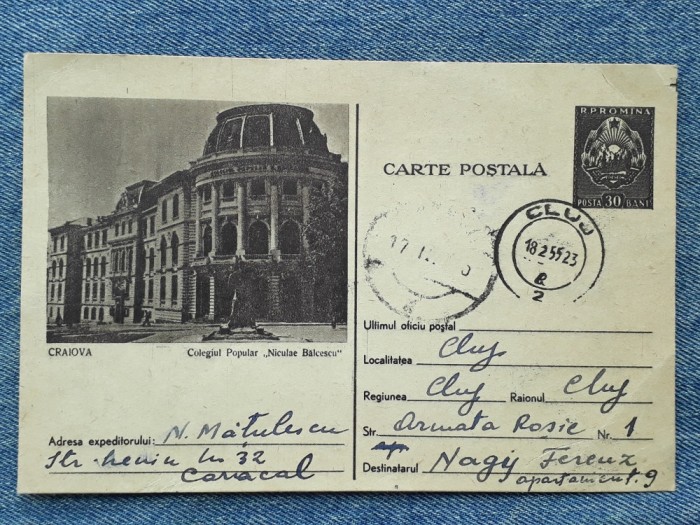 CRAIOVA
Colegiul Popular „Niculae Bălcescu"
Adresa expeditorului: N. Mățulescu
Str. Lenin No 32
Caracal
CARTE POȘTALĂ
R.P.ROMINA
POSTA 30 BANI
CLUJ
18.2.55 23
2
Ultimul oficiu poștal
Localitatea Cluj
Regiunea Cluj Raionul Cluj
Str. Armata Rosie Nr. 1
Destinatarul Nagy Ferenz
apartament. 9